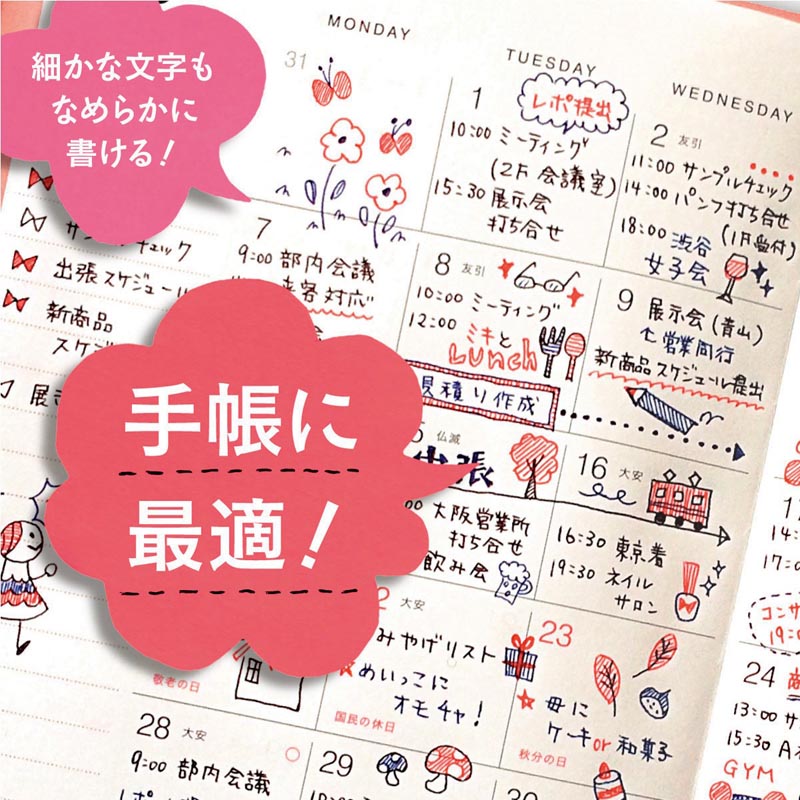 細かな文字も
なめらかに
書ける！
手帳に
最適！
MONDAY
TUESDAY
WEDNESDAY
31
1
レポ提出
10:00 ミーティング
(2F 会議室)
15:30 展示会
打ち合せ
2 友引
11:00 サンプルチェック
14:00 パンフ打ち合せ
(1F受付)
18:00 渋谷
女子会
チェック
出張スケジュール
新商品
スケジ
7
9:00 部内会議
来客対応
8 友引
10:00 ミーティング
12:00 ミキと
Lunch
見積り作成
9 展示会(青山)
営業同行
新商品スケジュール提出
仏滅
出張
大阪営業所
打ち合せ
飲み会
16 大安
16:30 東京着
19:30 ネイル
サロン
敬老の日
2 大安
みやげリスト
めいっこに
オモチャ!
国民の休日
23
母に
ケーキor和菓子
秋分の日
28 大安
9:00 部内会議
29
30
17
14:
17:0
コンサ
19:0
24
13:00 サ
15:30 A
GYM